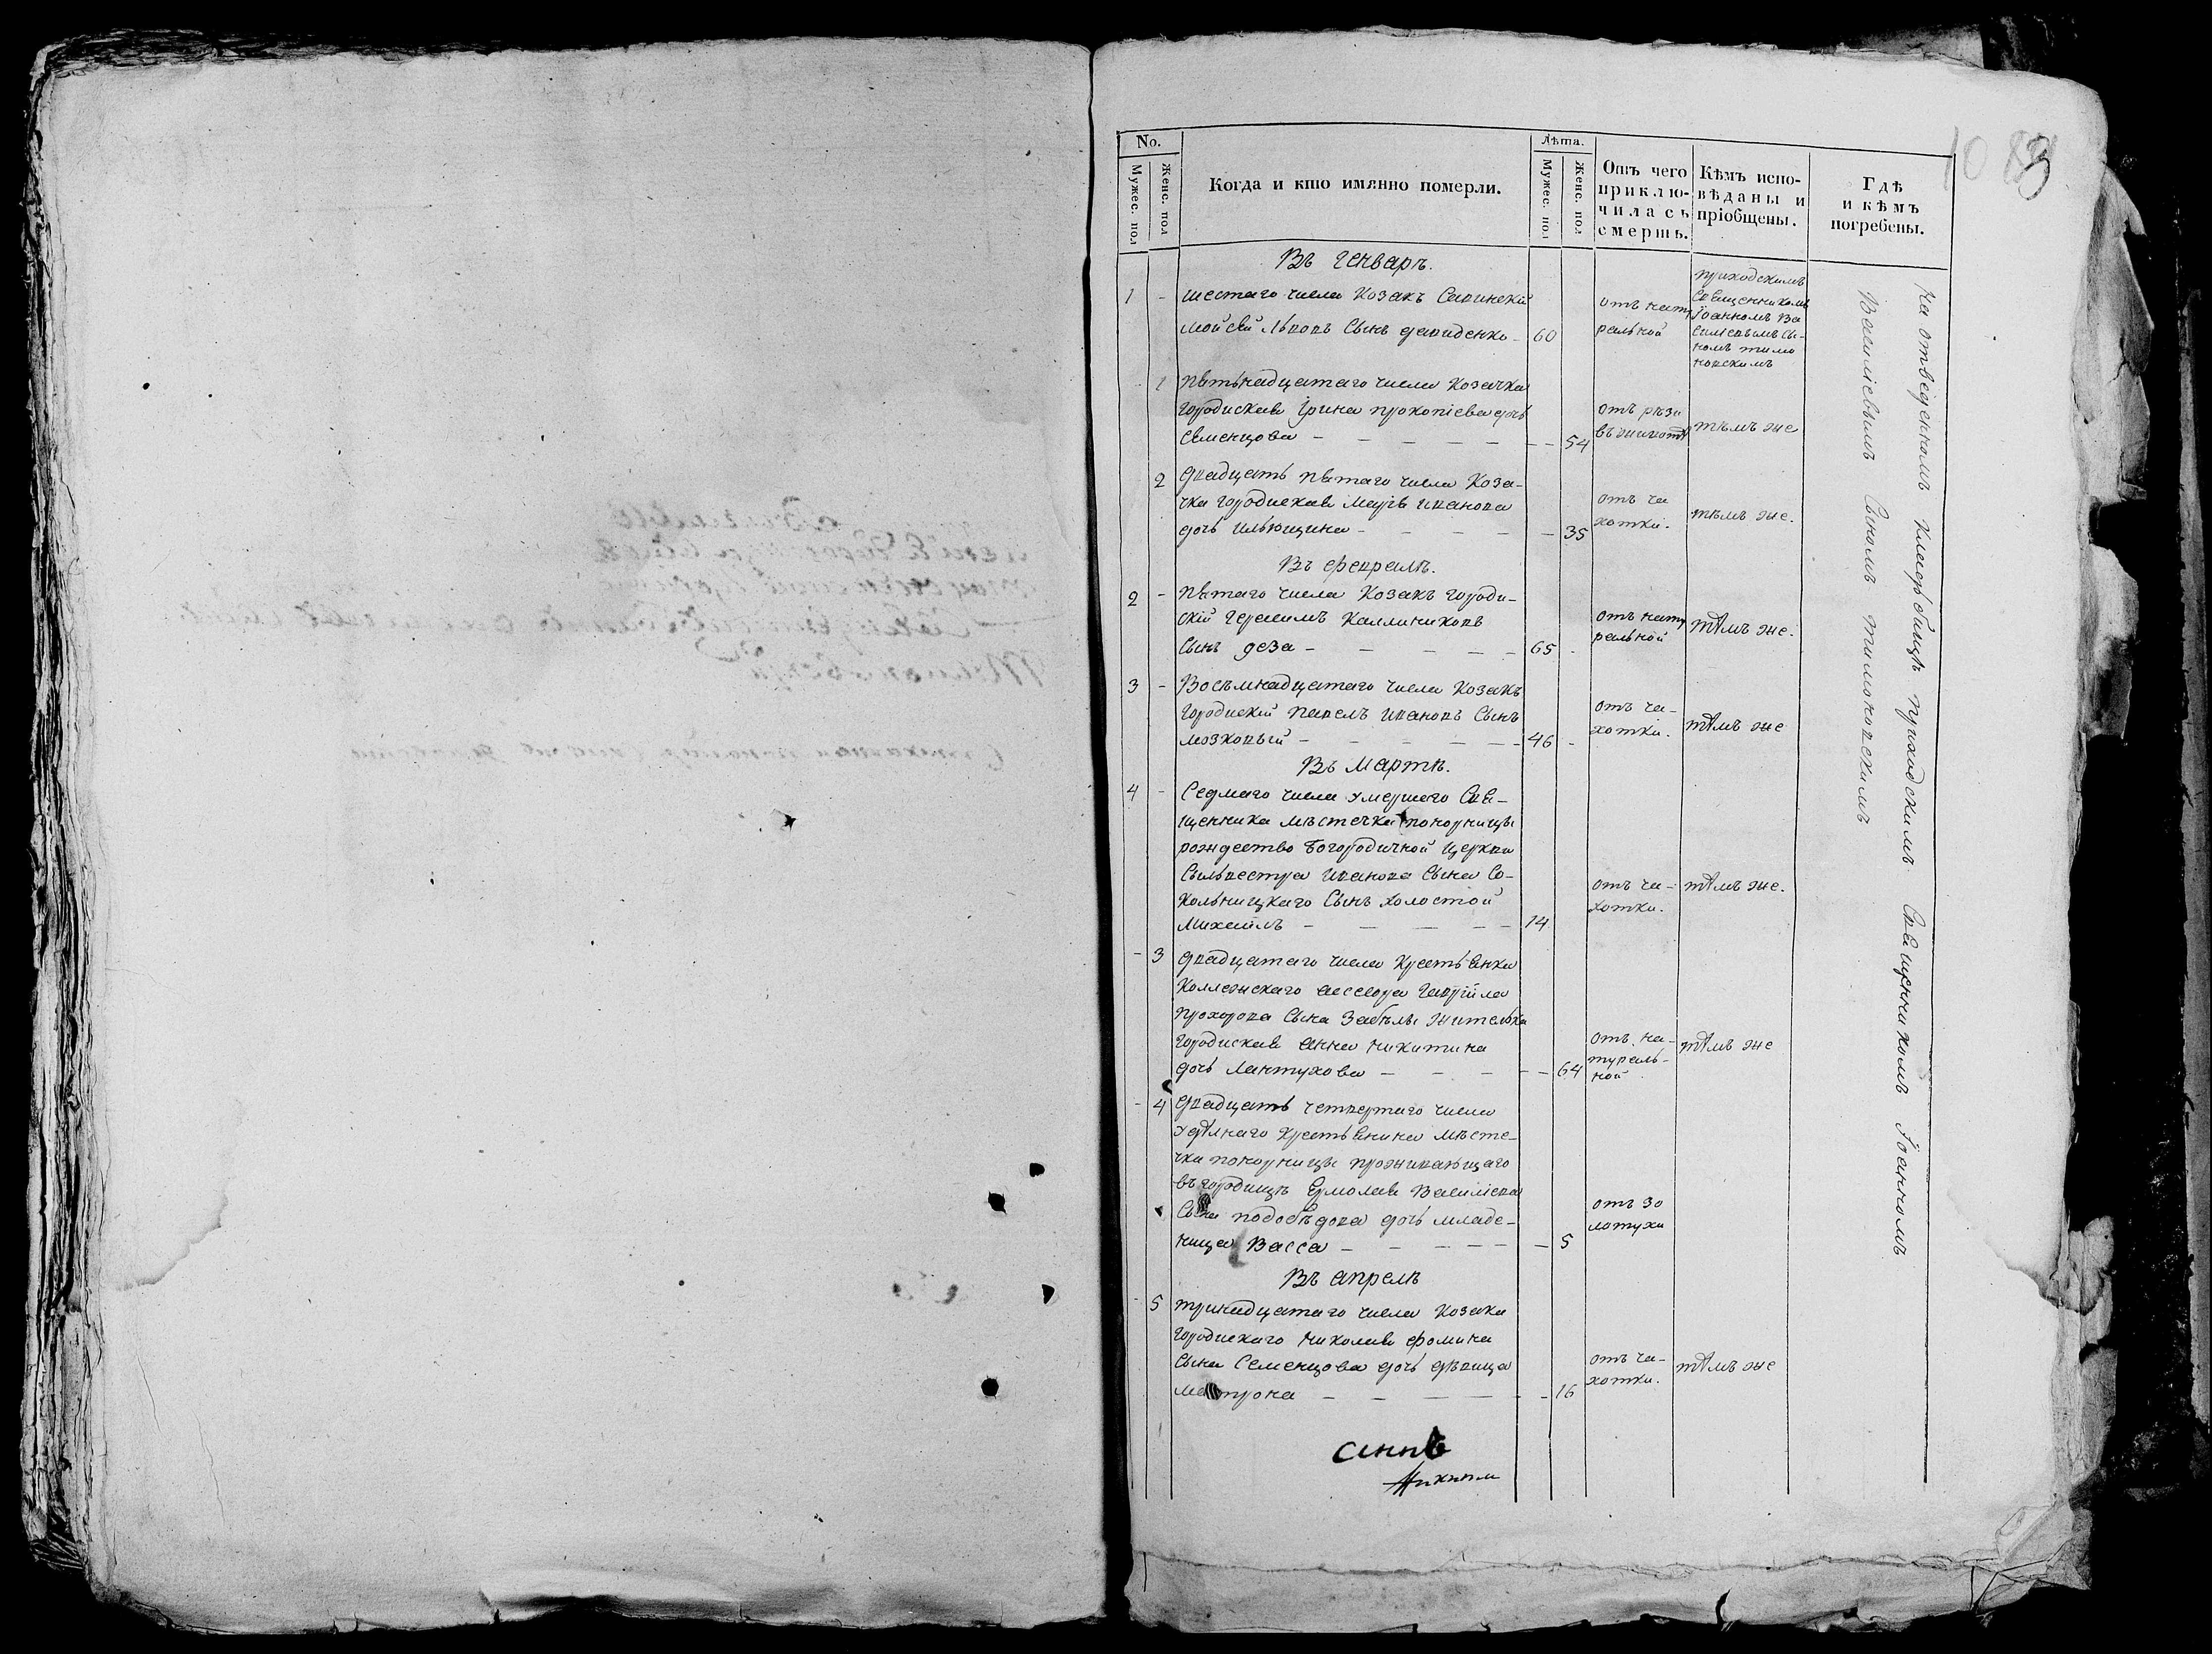 No.
Мужес. пол
Женс. пол
Когда и кто имянно померли.
Лѣта.
Мужес. пол
Женс. пол
Отъ чего
приклю-
чилась
смерть.
Кѣмъ испо-
вѣданы и
пріобщены.
Гдѣ
и кѣмъ
погребены.
10
Въ генварѣ.
1 - шестаго числа козакъ Савинскій
Мойсей Львовъ сынъ давиденко - 60
отъ нату
ральной
приходскимъ
Священникомъ
Іоанномъ Ва
силіевымъ сы-
номъ тимо
новскимъ
- 1 пятьнадцатаго числа козачка
городиская Ірина прокопіева дочь
Семенцова - - - - - - - 54
отъ рези
въ животѣ
тѣмъ же
2 двадцать пятаго числа коза-
чка городиская Марія иванова
дочь ильющина - - - - - 35
отъ ча
хотки.
тѣмъ же.
Въ февралѣ.
2 - пятаго числа козакъ городи-
скій герасимъ каллиниковъ
сынъ деза - - - - - - 65 -
отъ нату
ральной
тѣмъ же.
3 - Восѣмнадцатаго числа козакъ
городискій павелъ ивановъ сынъ
мозковый - - - - - - 46 -
отъ ча-
хотки.
тѣмъ же
Въ Мартѣ.
4 - Седмаго числа умершаго свя-
щенника мѣстечка понорницы
рождество богородичной церкви
Сильвестра иванова сына Со-
кольницкаго сынъ холостой
михаилъ - - - - - 14
отъ ча-
хотки.
тѣмъ же.
- 3 двадцатаго числа крестьянка
коллежскаго ассесора гавріила
прохорова сына забѣлы жителька
городиская анна никитина
дочь лантухова - - - - - 64
отъ на-
тураль-
ной
тѣмъ же
- 4 двадцать четвертаго числа
удѣлнаго крестьянина мѣсте-
чка понорницы проживающаго
въ городищѣ Ермолая василіева
сына подобѣдова дочь младе-
ница Васса - - - - - - 5
отъ зо
лотухи
Въ апрелѣ
- 5 тринадцатаго числа козака
городискаго николая фомина
сына Семенцова дочь дѣвица
матрона - - - - - - 16
отъ ча-
хотки.
тѣмъ же
На отвѣденномъ кладбищѣ приходскимъ Священникомъ Іоанномъ
Василіевымъ Сыномъ тимоновскимъ